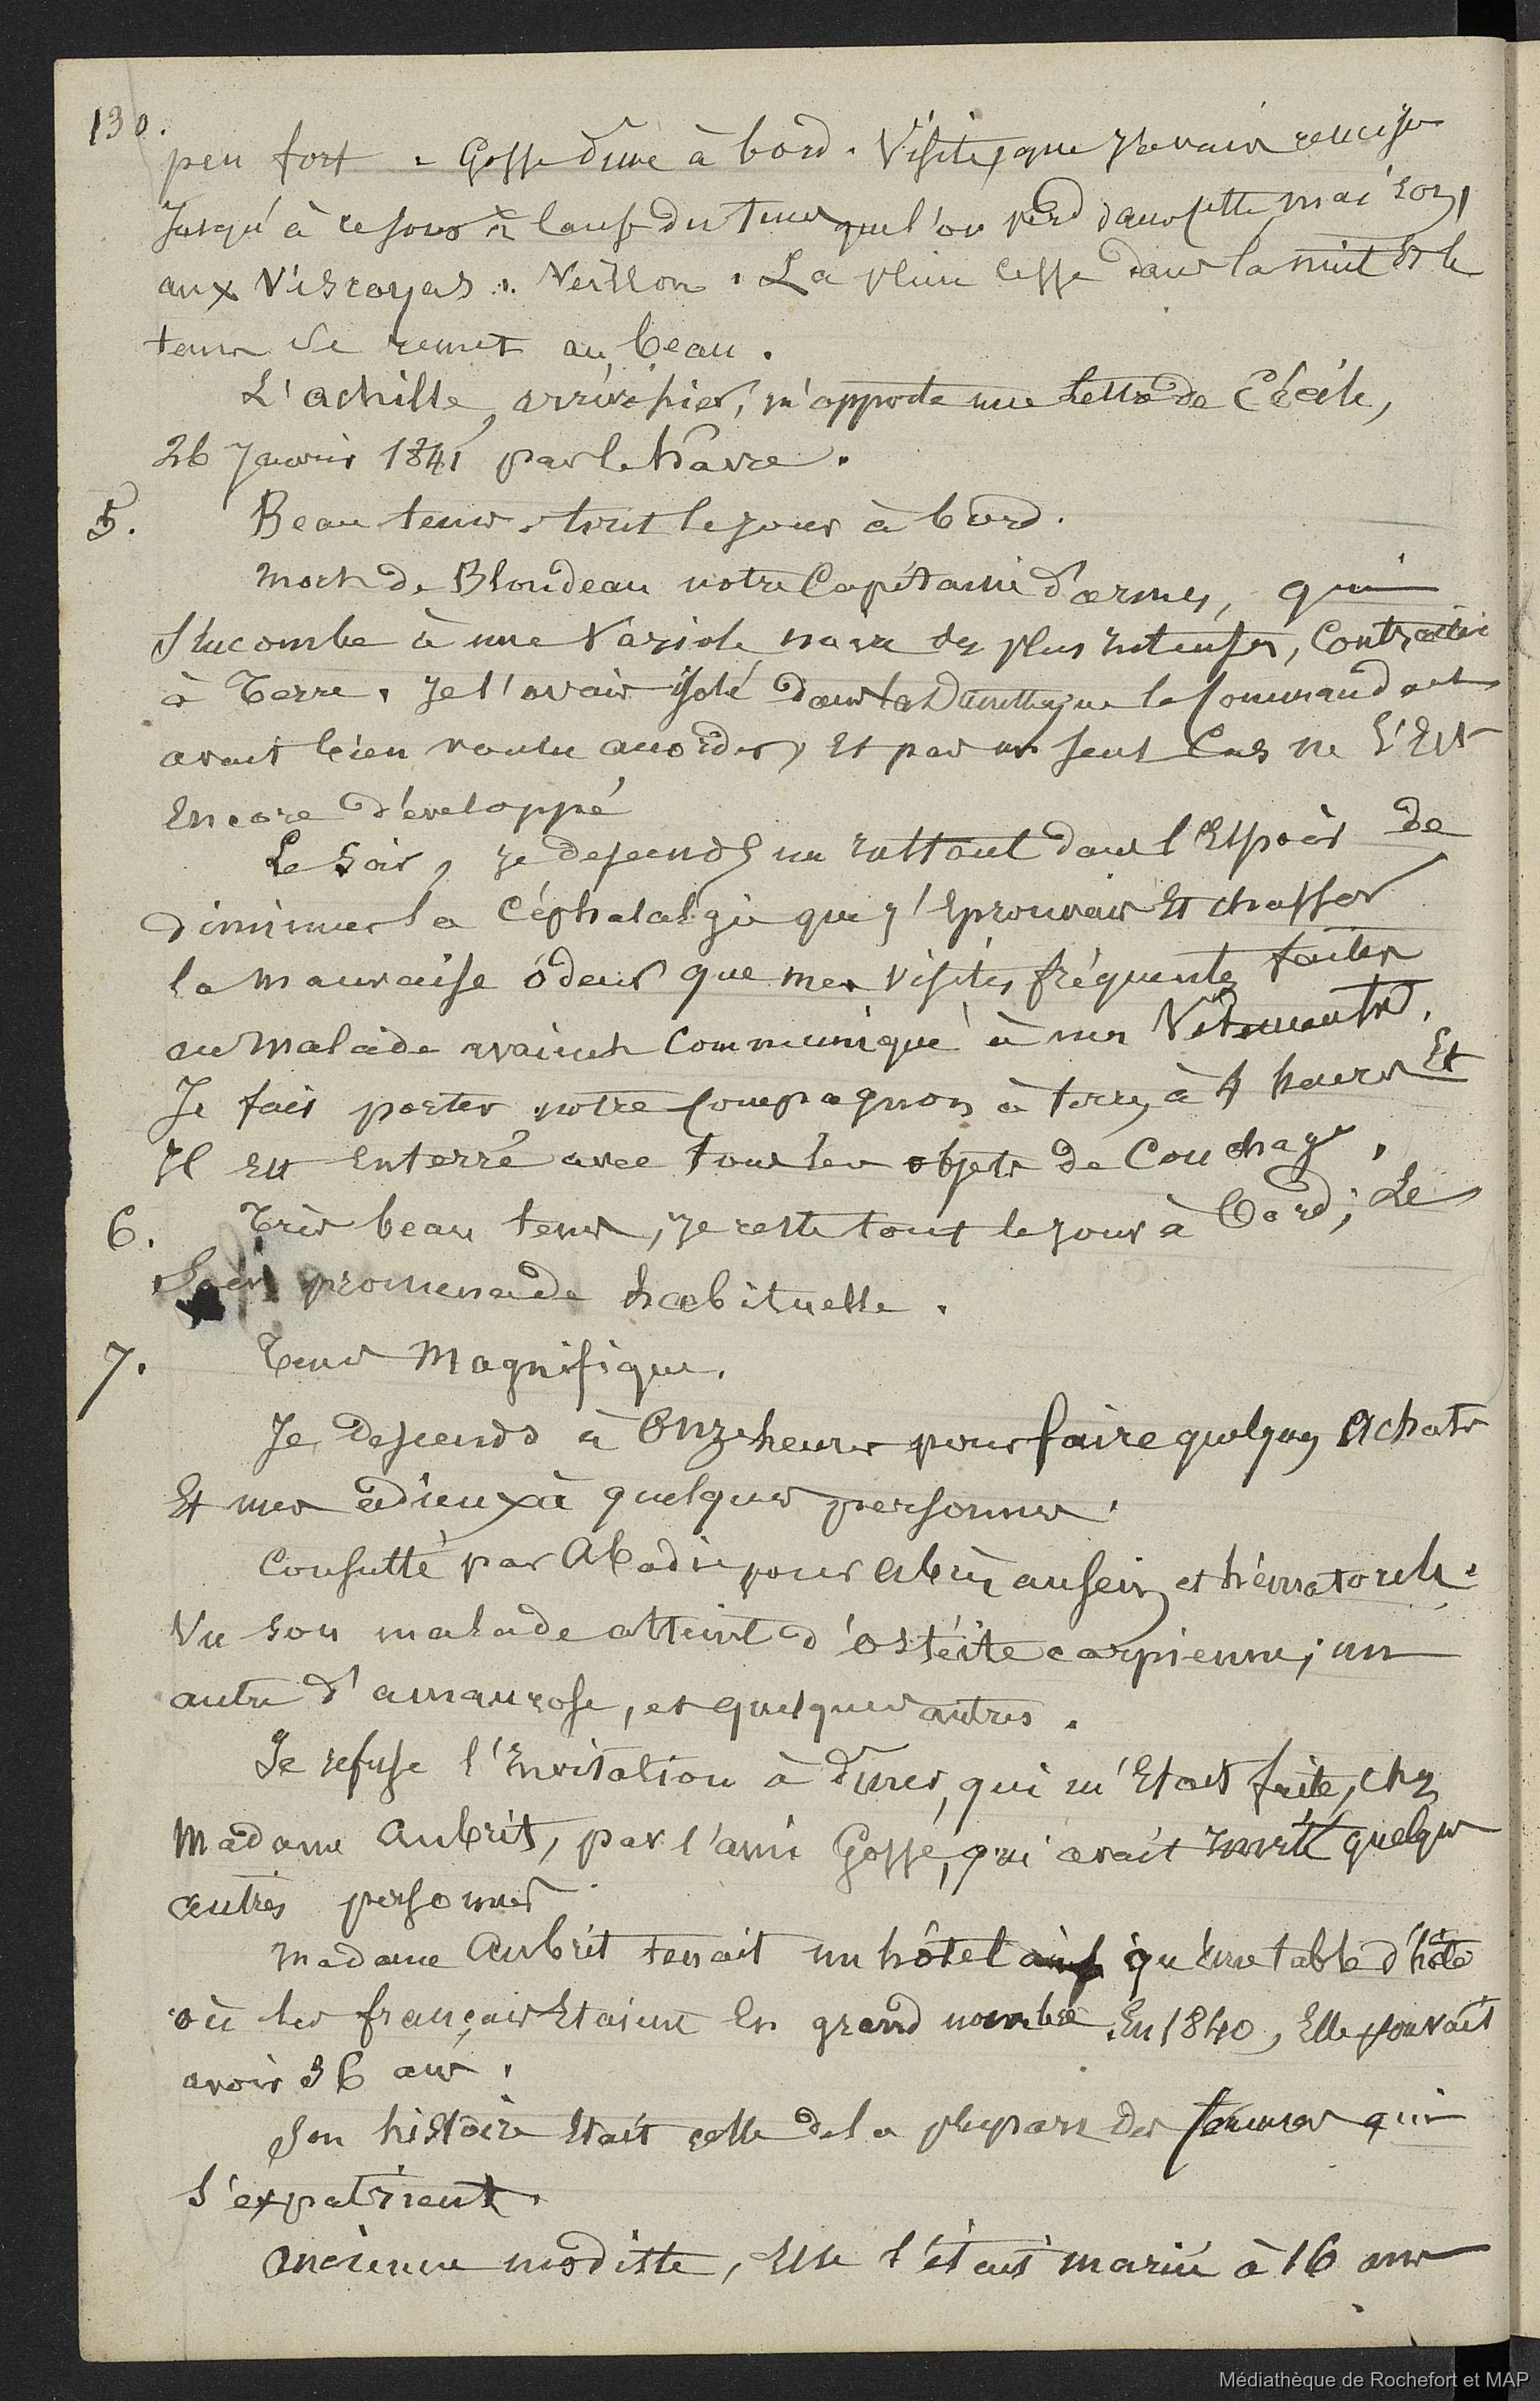 130.
peu fort. Gosse dine à bord. Visite, que j'avais refusée
jusqu'à ce jour à cause du tems que l'on perd dans cette maison,
aux Viscoyas. Veillon. La pluie cesse dans la nuit et le
tems se remet au beau.
L'achille, arrivé hier, m'apporte une lettre de Cécile,
26 Janvier 1841 par le havre.
5. Beau tems. tout le jour à bord.
Mort de Blondeau notre Capitaine d'armes, qui
succombe à une Variole noire des plus intenses, Contractée
à Terre. Je l'avais isolé dans la Dunette que le Commandant
avait bien voulu accorder, et pas un seul Cas ne s'est
Encore développé
Le soir, je descends un instant dans l'Espoir de
diminuer la Céphalalgie que j'Eprouvais Et chasser
la mauvaise odeur que mes visites fréquentes faites
au malade avaient Communiqué à mes Vêtements.
Je fais porter notre Compagnon à terre, à 4 heures Et
Il est Enterré avec tous les objets de Couchage.
6. Très beau tems, je reste tout le jour à bord; Le
Soir promenade habituelle.
7. Tems Magnifique.
Je descends à Onze heures pour faire quelques Achats
Et mes adieux à quelques personnes.
Consulté par Abadie pour abcès au sein et hématocèle.
Vu son malade atteint d'ostéite carpienne; un
autre d'amaurose, et quelques autres.
Je refuse l'Invitation à diner, qui m'Etait faite, chez
Madame Aubrit, par l'ami Gosse, qui avait invité quelques
autres personnes
Madame Aubrit tenait un hôtel ainsi qu'une table d'hôte
où les français Etaient En grand nombre. En 1840, Elle pouvait
avoir 36 ans.
Son histoire Etait celle de la plupart des femmes qui
s'expatrient.
ancienne modiste, Elle s'était mariée à 16 ans
Médiathèque de Rochefort et MAP